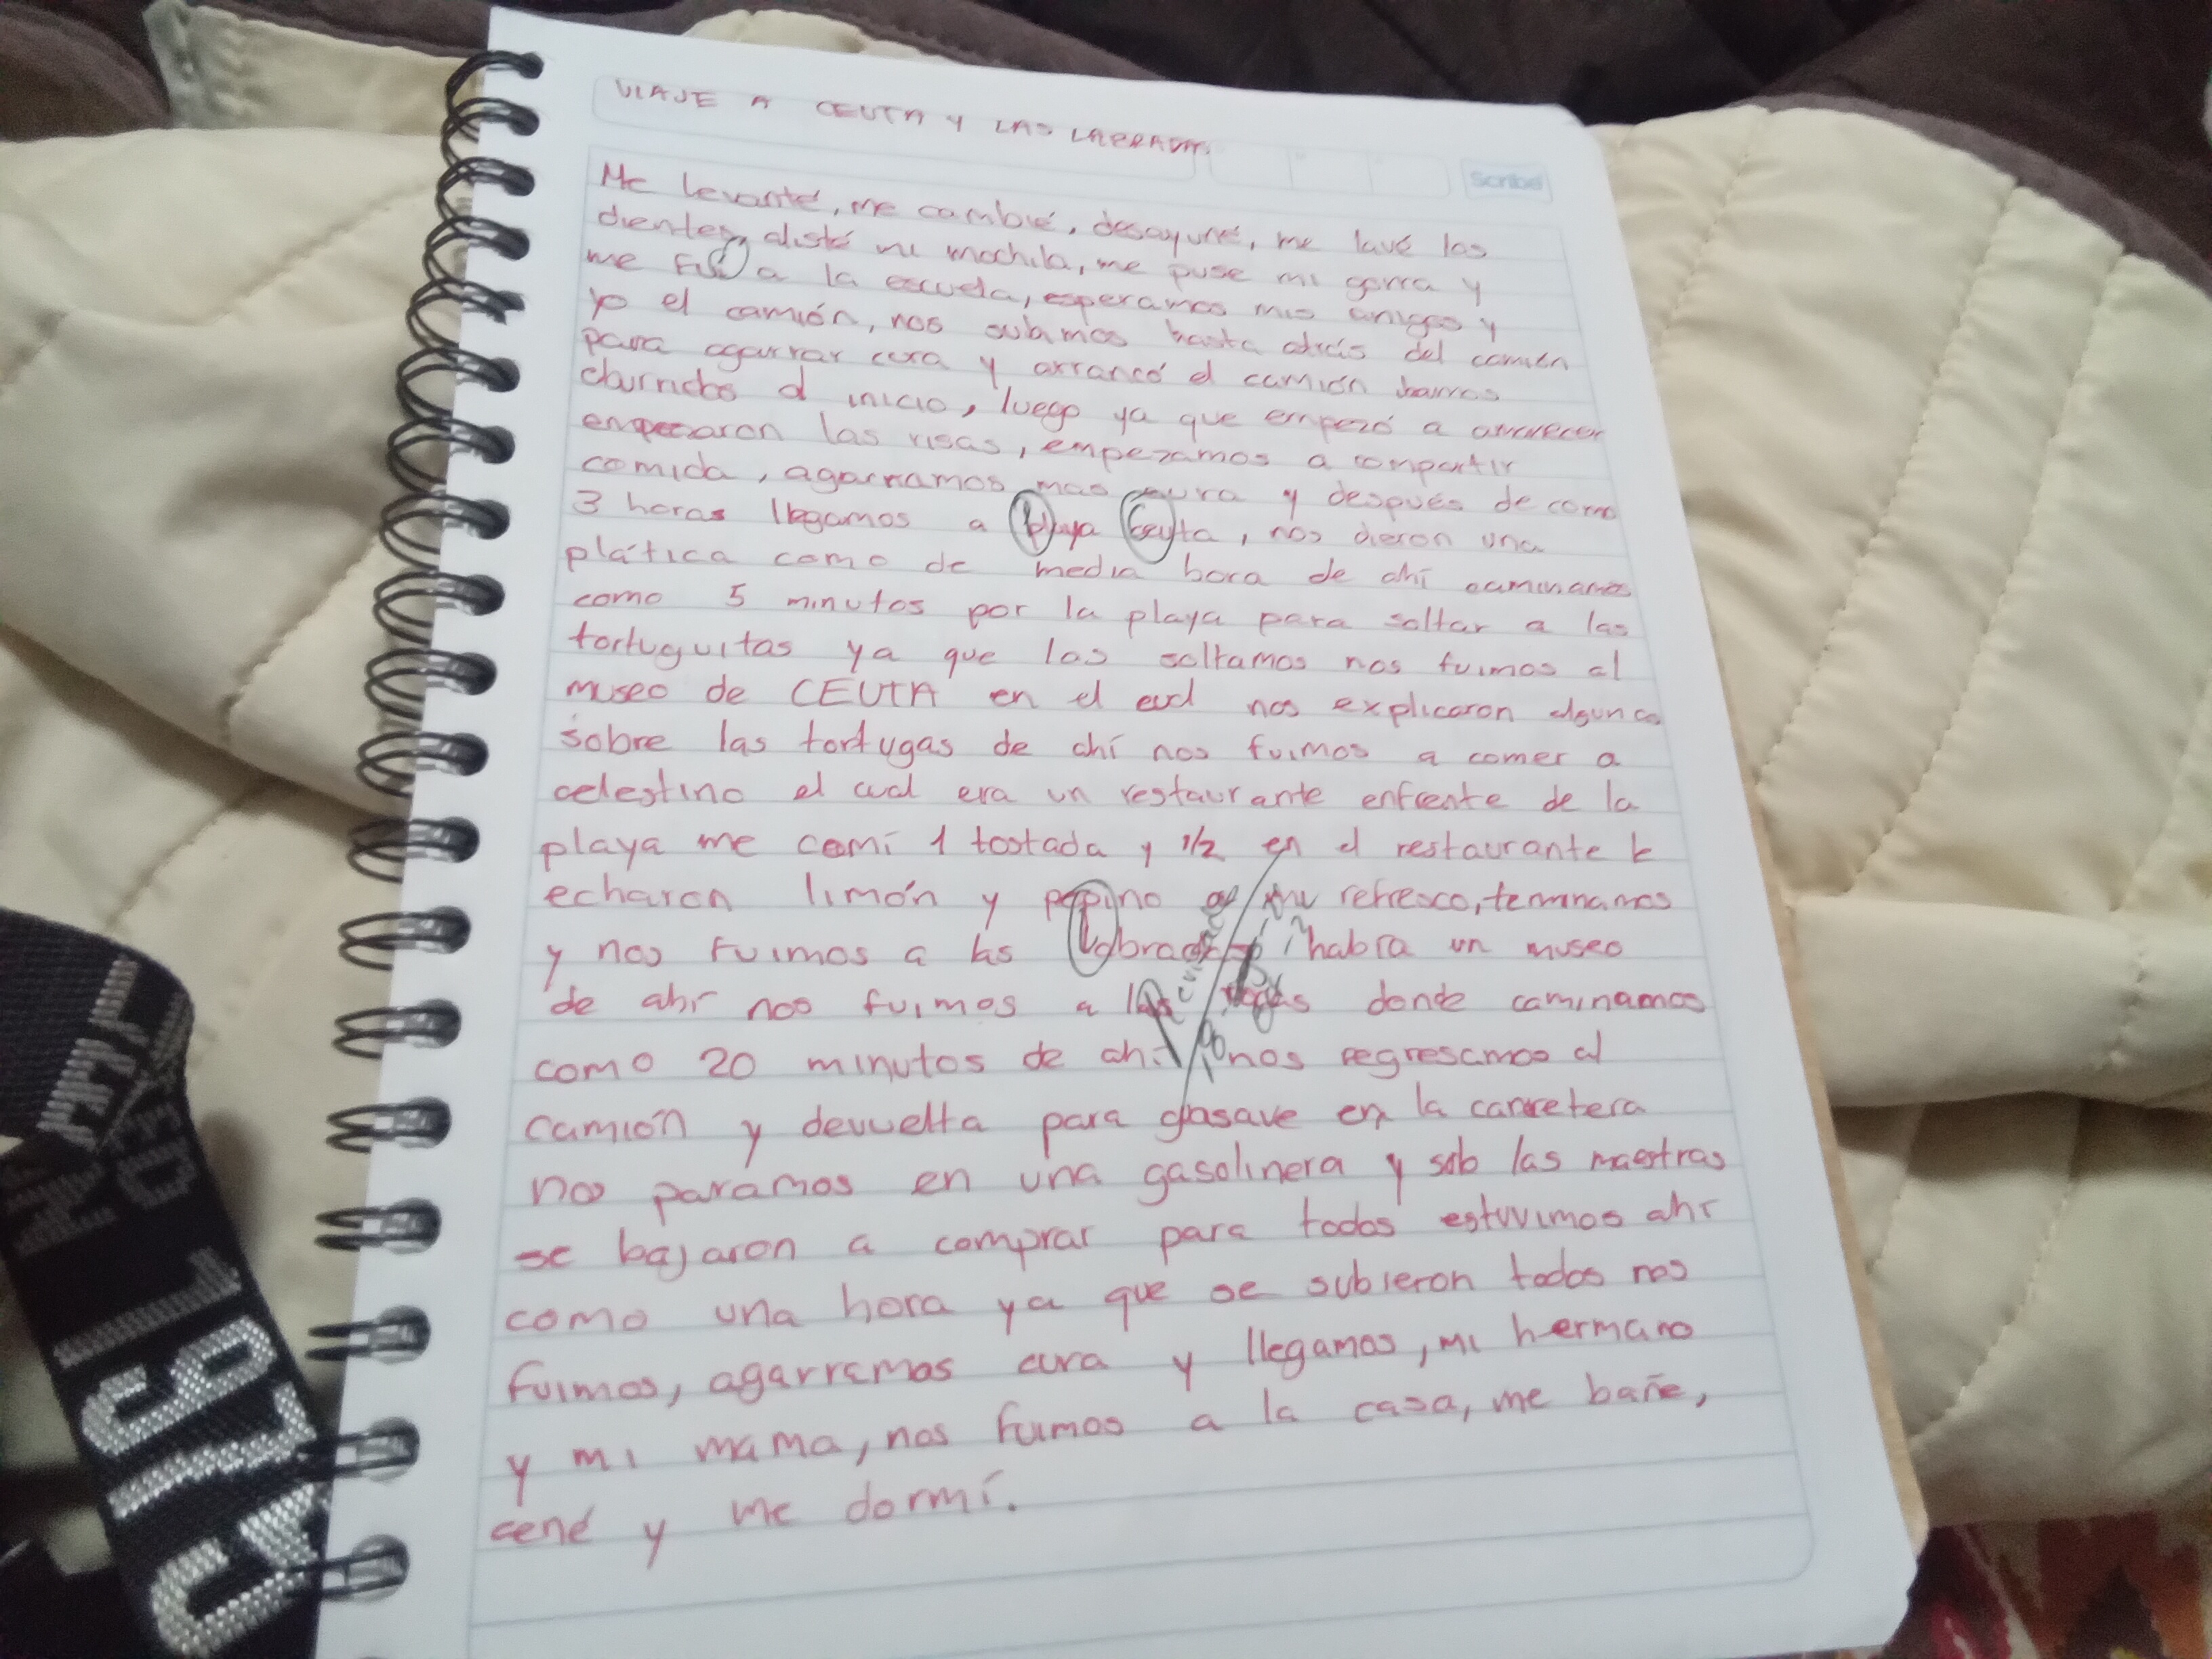 VIAJE A CEUTA Y LAS LABRADAS
Scribe
Me levanté, me cambié, desayuné, me lavé los
dientes, alisté mi mochila, me puse mi gorra y
me fui a la escuela, esperamos mis amigos y
yo el camión, nos subimos hasta atrás del camión
para agarrar cura y arrancó el camión ibamos
aburridos al inicio, luego ya que empezó a amanecer
empezaron las risas, empezamos a compartir
comida, agarramos mas cura y después de como
3 horas llegamos a playa ceuta, nos dieron una
plática como de media hora de ahí caminamos
como 5 minutos por la playa para soltar a las
tortuguitas ya que las soltamos nos fuimos al
museo de CEUTA en el cual nos explicaron
sobre las tortugas de ahí nos fuimos a comer a
celestino el cual era un restaurante enfrente de la
playa me comí 1 tostada y 1/2 en el restaurante le
echaron limón y pepino mi refresco, terminamos
y nos fuimos a las labradas habia un museo
de ahí nos fuimos a las donde caminamos
como 20 minutos de ahí nos regresamos al
camión y devuelta para guasave en la carretera
nos paramos en una gasolinera y solo las maestras
se bajaron a comprar para todos estuvimos ahí
como una hora ya que se subieron todos nos
fuimos, agarramos cura y llegamos, mi hermano
y mi mama, nos fuimos a la casa, me bañe,
cené y me dormí.